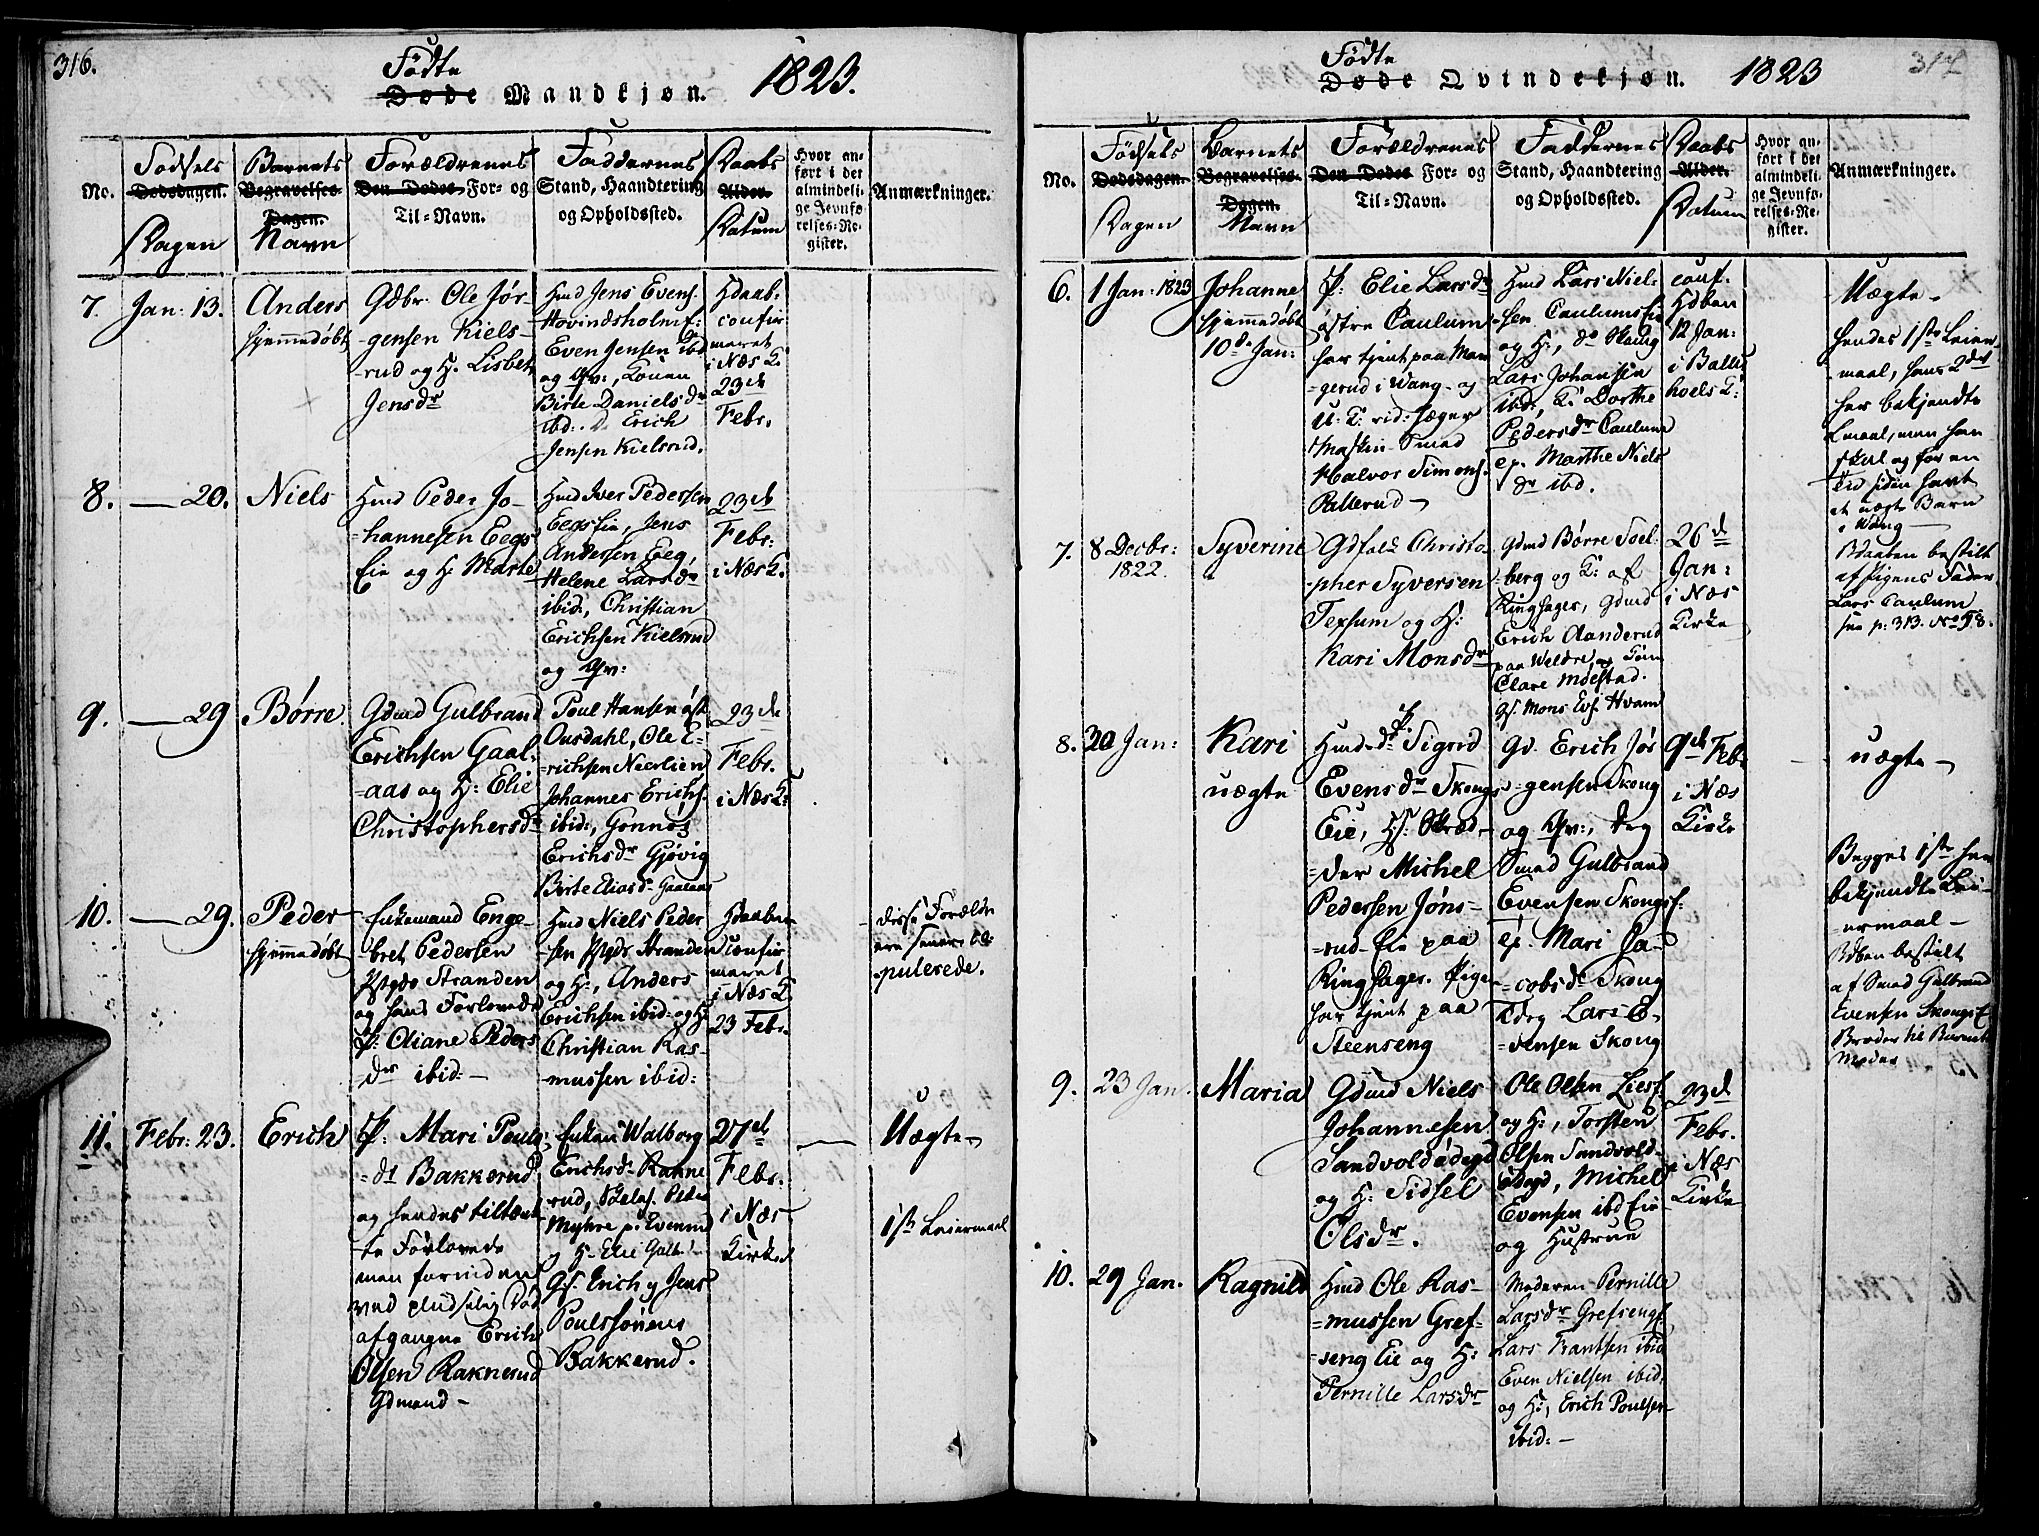 316.
Födte
Døde Mandkjøn. 1823.
No.
Fødsels
Dødsdagen.
Dagen
Barnets
Begravelses-
Dagen.
Navn
Forældrenes
Den Dødes For- og
Til-Navn.
Faddernes
Stand, Haandtering
og Opholdssted.
Daabs
Alder.
Datum
Hvor an-
ført i det
almindeli-
ge Jevnfø-
relses-Re-
gister.
Anmærkninger.
7. Jan: 13.
Anders
hjemmedøbt
Gdbr. Ole Jør-
gensen Kiels-
rud og H. Lisbet
Jensdr
Hmd Jens Evens.
Hovindsholmf:
Even Jensen ibd
og Qv:, Konen
Birte Danielsdr
ibd: Erich
Jensen Kielsrud.
Hdaab:
confir
meret
i Næs K:
23de
Febr.
8. — 20.
Niels
Hmd Peder Jo-
hannesen Eegs
Eie og H: Marte
Hmd Iver Pedersen
Eegs Eie, Jens
Andersen Eeg,
Helene Larsdr
ibid:, Christian
Erichsen Kielsrud
og Qv:
23de
Febr:
i Næs K:
9. — 29
Børre.
Gdmd Gulbrand
Erichsen Gaal-
aas og H: Elie
Christophersdr
Poul Hansen øst
Ousdahl, Ole E-
richsen Nerlien
Johannes Erichs.
ibid:, Gonnor
Erichsdr Gjøvig
Birte Eliasdr Gaalaas
23de
Febr.
i Næs K:
10. — 29.
Peder
hjemmedøbt
Enkemand Enge-
bret Pedersen
Stranden
og hans Forlovede
P: Oliane Peders
dr ibid: —
Hmd Niels Peder
sen Stranden
og H:, Anders
Erichsen ibid: og H:
Christian Ras-
mussen ibid:
Hdaaben
confir
meret
i Næs K
23 Febr.
disse Forældre
ere senere co:
pulerede.
11. Febr: 23.
Erich
P: Mari Pouls
dr Bakkerud
og hendes tiltænk
te Forlovede
men forinden
ved pludselig Død
afgangne Erich
Olsen Raknerud
Gdmand —
Enken Walborg
Erichsdr Rakne
rud, Peder
Myhre p. Evenrud
og H. Elie Gulb:
Gs. Erich og Jens
Poulssønens
Bakkerud.
27de
Febr:
i Næs
Kirke
Uægte —
1ste Leiermaal
317
Födte
Døde Qvindekjøn. 1823
No.
Fødsels
Dødsdagen.
Dagen
Barnets
Begravelses-
Dagen.
Navn
Forældrenes
Den Dødes For- og
Til-Navn.
Faddernes
Stand, Haandtering
og Opholdssted.
Daabs
Alder.
Datum
Hvor an-
ført i det
almindeli-
ge Jevnfø-
relses-Re-
gister.
Anmærkninger.
6. 1 Jan: 1823
Johanne
hjemmedøbt
10de Jan:
P: Elie Larsdr
østre Caulum
har tjent paa Man
gerud i Wang og
U. F: vid: Jæger
Maskin-Smed
Halvor Simens.
Pellerud —
Hmd Lars Niel-
sen Caulums Eie
og H:, dr Skoug
Lars Johansen
ibd:, K: Dorthe
Pedersdr Caulum
ep. Marthe Niels
dr ibd.
conf.
Hdben
12 Jan:
i Balles
hoels K:
Uægte —
hendes 1ste Leier
maal, hans 2det
her bekjendte
Lmaal, men han
skal og for en
Tid siden havt
et uægte Barn
i Wang —
Bdaaben bestilt
af Pigens Fader
Lars Caulum
see p: 313. No 98.
7. 8 Decbr:
1822.
Syverine
Gdfolk Christo-
pher Syversen
Texsum og H:
Kari Monsdr
Gdmd Børre Soel-
berg og K: af
Ringsager, Gdmd
Erich Aanderud
paa Weldre,
Clare Moestad.
Gs. Mons Ev Hvam
26de
Jan:
i Næs
Kirke
8. 20 Jan:
Kari
uægte
Hmdsdr P. Sigrid
Evensdr Skougs
Eie, Hs. Skræd-
der Michel
Pedersen Jøns-
rud-Eie paa
Ringsager. Pigen
har tjent paa
Steenseng
Gv. Erich Jør
gensen Skoug
og Qv:, Dreg
Smed Gulbrand
Evensen Skougs.
ep. Mari Ja-
cobsdr Skoug
Tdreg Lars E-
vensen Skoug
9de Febr
i Næs
Kirke
uægte —
Begges 1ste her
bekjendte Lei-
ermaal —
Bdben bestilt
af Smed Gulbrand
Evensen Skougs E
Broder til Barnets
Moder
9. 23 Jan.
Maria
Gdmd Niels
Johannesen
Sandvold ødegd
og H: Sidsel
Olsdr.
Ole Olsen Lies.
og H:, Torsten
Olsen Sandvold-
ødegd, Michel
Evensen ibd Eie
og Hustrue
23d
Febr.
i Næs
Kirke
10. 29 Jan.
Ragnild
Hmd Ole Ras-
mussen Gref-
seng Eie og H:
Pernille Larsdr
Moderen Pernille
Larsdr Grefsengs.
Lars Frantsen ibid
Even Nielsen ibid,
og H:, Erich Poulsen
ibid: —